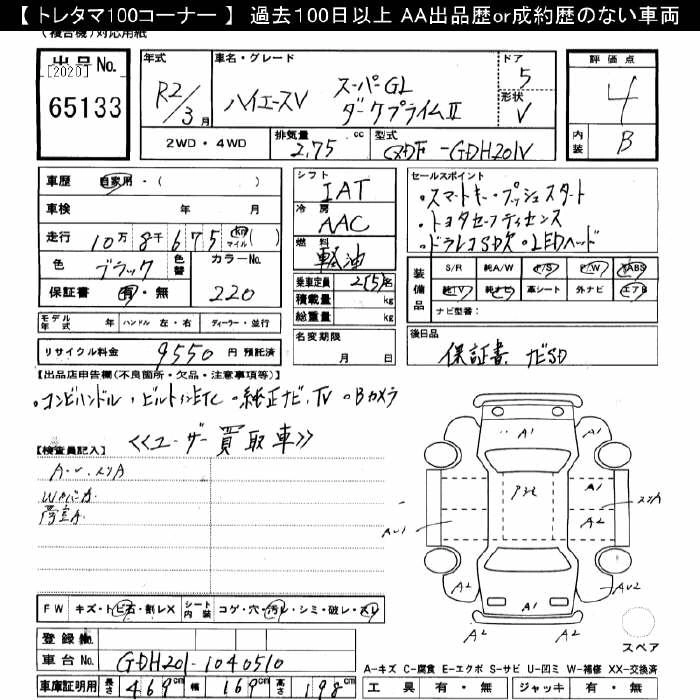 【 トレタマ100コーナー 】 過去100日以上 AA出品歴or成約歴のない車両
(複合機)対応用紙
出品No.
[2020]
65133
年式
R2/3月
車名・グレード
ハイエースV スーパーGL
ダークプライムⅡ
ドア
5
形状
V
評価点
4
内装
B
2WD・4WD
排気量
2.75 cc
型式
QDF-GDH201V
車歴 自家用・( )
車検 年 月
走行 10万8千675 km マイル ( )
色 ブラック 色替
カラーNo.
220
保証書 有・無
シフト
IAT
冷房
AAC
燃料
軽油
乗車定員 2(5)名
積載量 kg
総重量 kg
名変期限
月 日
セールスポイント
・スマートキー・プッシュスタート
・トヨタセーフティセンス
・ドラレコSD欠・LEDヘッド
装備品
S/R 純A/W P/S P/W ABS
純TV 純ナビ 革シート 外ナビ エアB
ナビ型番:
モデル年式 年 ハンドル 左・右 ディーラー・並行
リサイクル料金 9550 円 預託済
後日品
保証書 ナビSD
【出品店申告欄(不良箇所・欠品・注意事項等)】
・コンビハンドル・ビルトインETC・純正ナビ・TV・Bカメラ
≪ユーザー買取車≫
【検査員記入】
A1
A1
A1
A2
A2
AU2
A1
A2
A2
FW キズ・トビ石・割レX シート内装 コゲ・穴・汚レ・シミ・破レ・スレ
登録番号
車台No. GDH201-1040510
車庫証明用 長さ 469cm 幅 169cm 高さ 198cm
スペア
A-キズ C-腐食 E-エクボ S-サビ U-凹ミ W-補修 XX-交換済
工具 有・無 ジャッキ 有・無